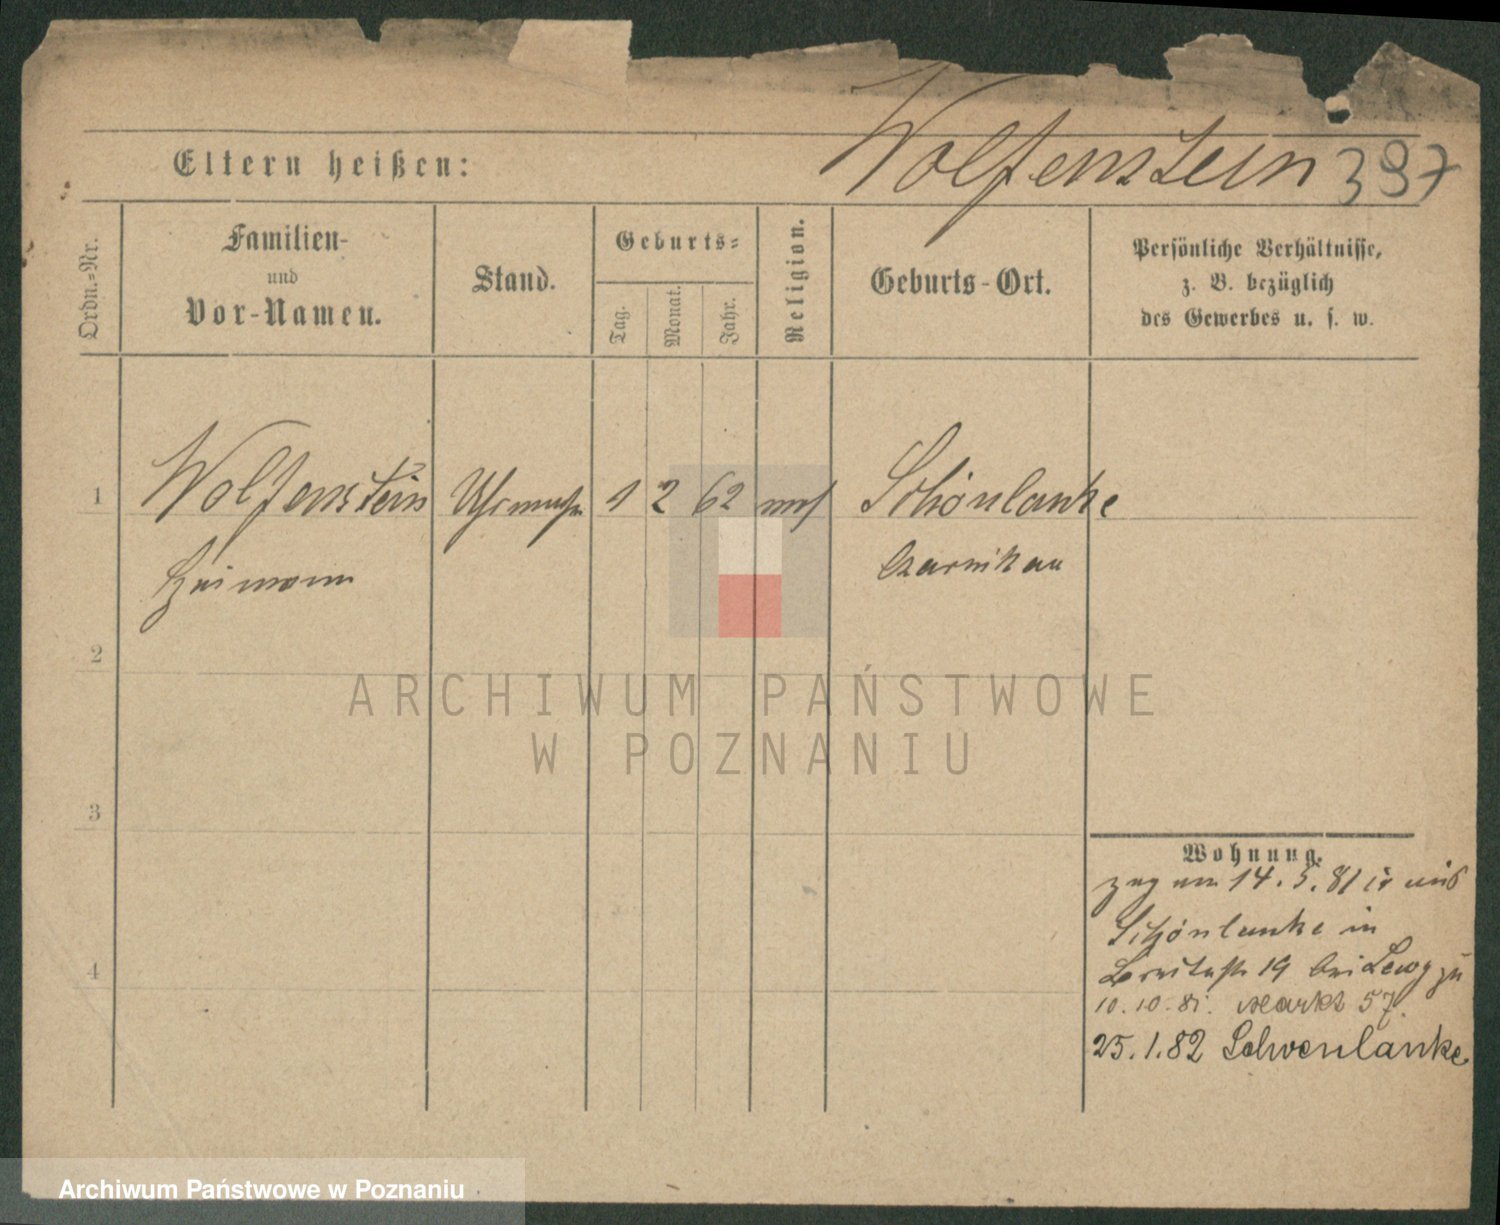 Wolfenstein 397
Eltern heißen:
Ordn.-Nr.
Familien-
und
Vor-Namen.
Stand.
Geburts-
Tag.
Monat.
Jahr.
Religion.
Geburts-Ort.
Persönliche Verhältnisse,
z. B. bezüglich
des Gewerbes u. s. w.
1 Wolfenstein 1 2 62 mos Schönlanke
Heimann Czarnikau
2
3
4
Wohnung.
zug am 14. 5. 81 aus
Schönlanke in
Breitestr 19 bei Lewy zu
10.10.81. Markt 57.
25.1.82 Schoenlanke
ARCHIWUM PAŃSTWOWE
W POZNANIU
Archiwum Państwowe w Poznaniu